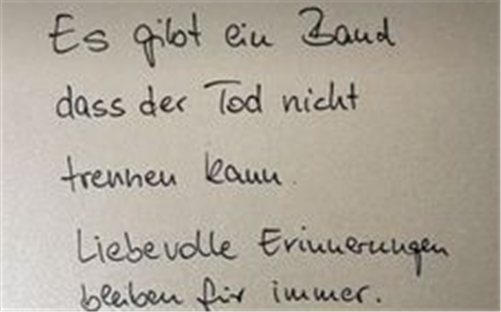 Es gibt ein Band
dass der Tod nicht
trennen kann.
Liebevolle Erinnerungen
bleiben für immer.